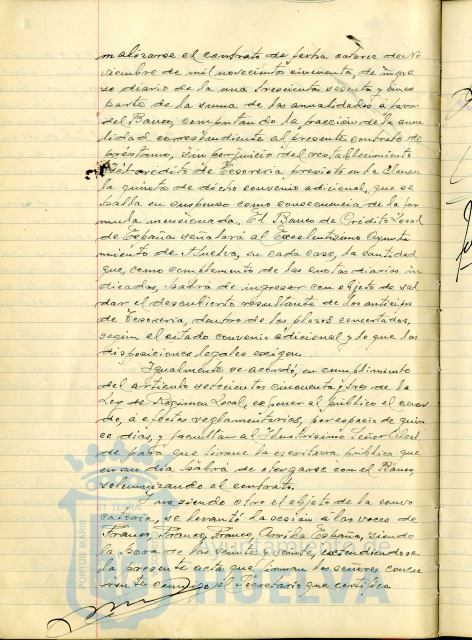 malizarse el contrato de fecha catorce de No
viembre de mil novecientos cincuenta, de ingre
so diario de la una trescientos sesenta y cinco
parte de la suma de las anualidades a favor
del Banco, computando la fracción de la anua
lidad correspondiente al presente contrato de
préstamo, sin perjuicio del restablecimiento
del crédito de Tesorería previsto en la Clausu
la quinta de dicho convenio adicional, que se
halla en suspenso como consecuencia de la fór
mula mencionada. El Banco de Crédito Local
de España señalará al Excelentísimo Ayunta
miento de Huelva, en cada caso, la cantidad
que, como complemento de las cuotas diarias in
dicadas, habrá de ingresar con objeto de sal
dar el descubierto resultante de los anticipos
de Tesorería, dentro de los plazos concertados,
según el citado convenio adicional y lo que las
disposiciones legales exigen.
Igualmente se acordó, en cumplimiento
del artículo setecientos cincuenta y tres de la
Ley de Régimen Local, exponer al público el acuer
do, a efectos reglamentarios, por espacio de quin
ce días, y facultar al Ilustrísimo Señor Alcal
de para que firme la escritura pública que
en su día habrá de otorgarse con el Banco,
solemnizando el contrato.
Y no siendo otro el objeto de la convo
catoria, se levantó la sesión a las voces de
Franco, Franco, Franco, Arriba España, siendo
la hora de las veinte y veinte, extendiéndose
la presente acta que firman los señores concu
rrentes conmigo el Secretario que certifica
PORTUS MARIS ET TERRAE
Ayuntamiento de
HUELVA